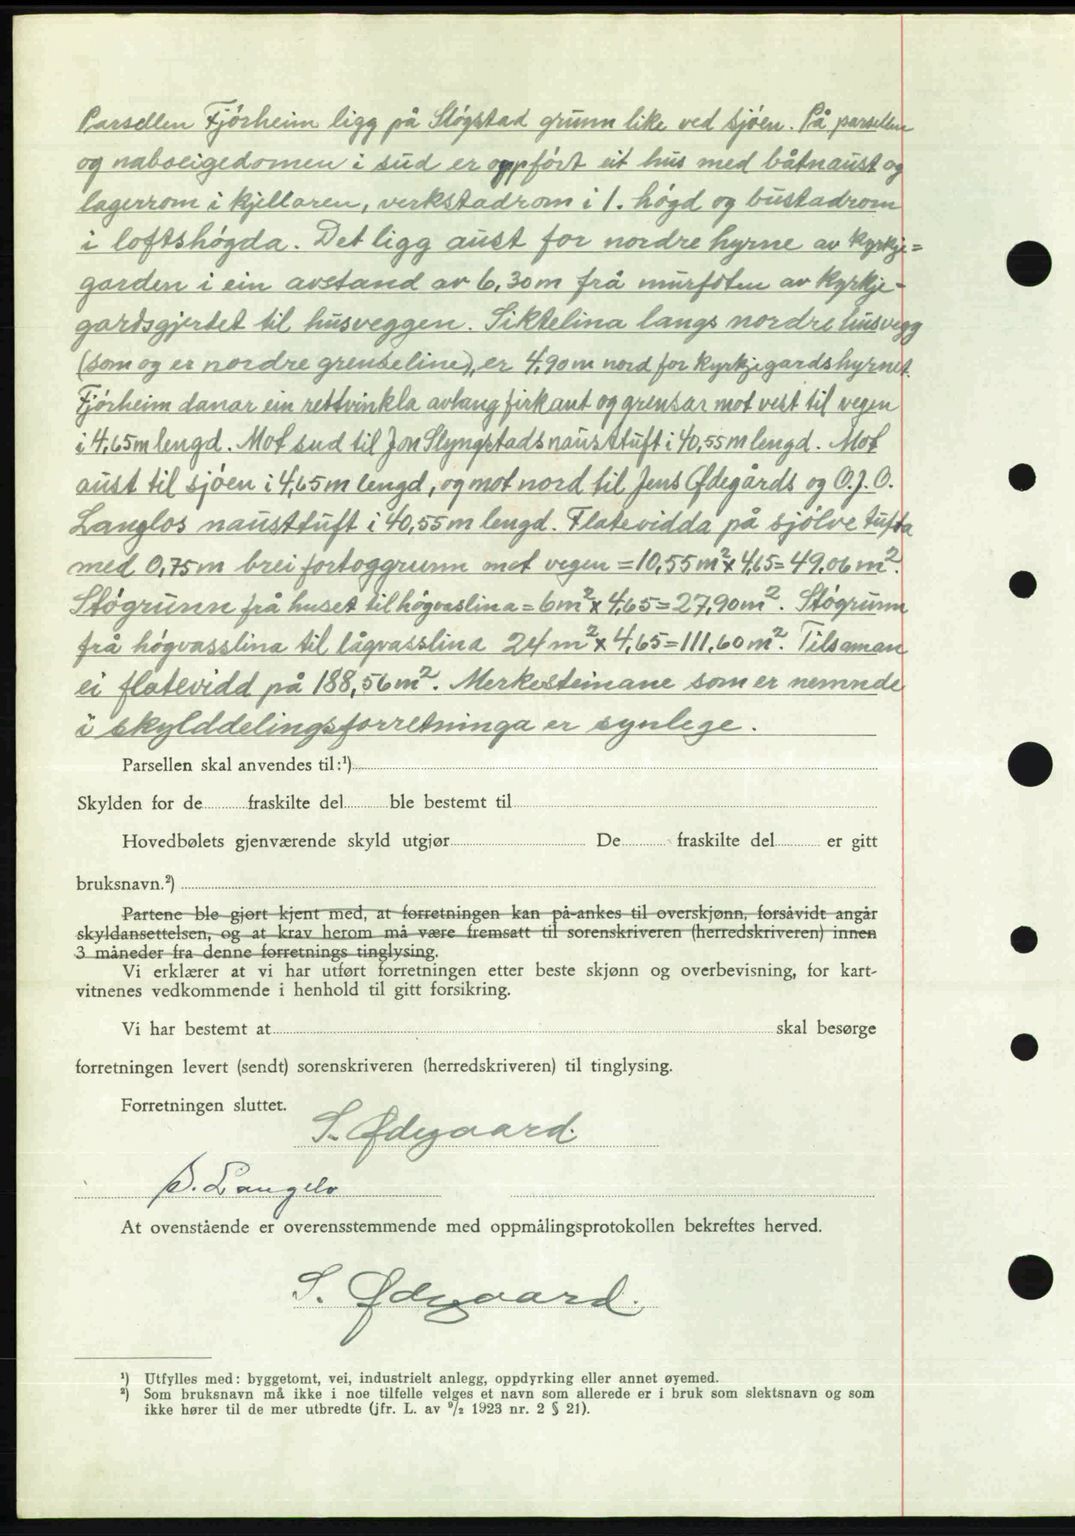 Parsellen Fjórheim ligg på Stógstad grunn like ved sjóen. På parsellen
og naboeigedomen i sud er oppfórt eit hus med båtnaust og
lagerrom i kjellaren, verkstadrom i 1. hógd og bustadrom
i loftshógda. Det ligg aust for nordre hyrne av kyrkje=
garden i ein avstand av 6,30 m frå murfóten av kyrkje-
gardsgjerdet til husveggen. Siktelina langs nordre husvegg
(som og er nordre grenseline), er 4,90 m nord for kyrkjegardshyrnet.
Fjórheim danar ein rettvinkla avlang firkant og grensar mot vest til vegen
i 4,65 m lengd. Mot sud til Jon Slyngstads nausttuft i 40,55 m lengd. Mot
aust til sjóen i 4,65 m lengd, og mot nord til Jens Ødegårds og O. J. O.
Langlos nausttuft i 40,55 m lengd. Flatevidda på sjólve tufta
med 0,75 m brei fortoggrunn mot vegen = 10,55 m² x 4,65 = 49,06 m².
Stógrunn frå huset til hógvaslina = 6 m² x 4,65 = 27,90 m². Stógrunn
frå hógvasslina til lågvasslina 24 m² x 4,65 = 111,60 m². Tilsaman
ei flatevidd på 188,56 m². Merkesteinane som er nemnde
i skylddelingsforretninga er synlege.
Parsellen skal anvendes til:¹)
Skylden for de fraskilte del ble bestemt til
Hovedbølets gjenværende skyld utgjør De fraskilte del er gitt
bruksnavn.²)
Partene ble gjort kjent med, at forretningen kan på-ankes til overskjønn, forsåvidt angår
skyldansettelsen, og at krav herom må være fremsatt til sorenskriveren (herredskriveren) innen
3 måneder fra denne forretnings tinglysing.
Vi erklærer at vi har utført forretningen etter beste skjønn og overbevisning, for kart-
vitnenes vedkommende i henhold til gitt forsikring.
Vi har bestemt at skal besørge
forretningen levert (sendt) sorenskriveren (herredskriveren) til tinglysing.
Forretningen sluttet.
S. Ødegaard
Langelo
At ovenstående er overensstemmende med oppmålingsprotokollen bekreftes herved.
S. Ødegaard.
¹) Utfylles med: byggetomt, vei, industrielt anlegg, oppdyrking eller annet øyemed.
²) Som bruksnavn må ikke i noe tilfelle velges et navn som allerede er i bruk som slektsnavn og som
ikke hører til de mer utbredte (jfr. L. av ⁹/₂ 1923 nr. 2 § 21).